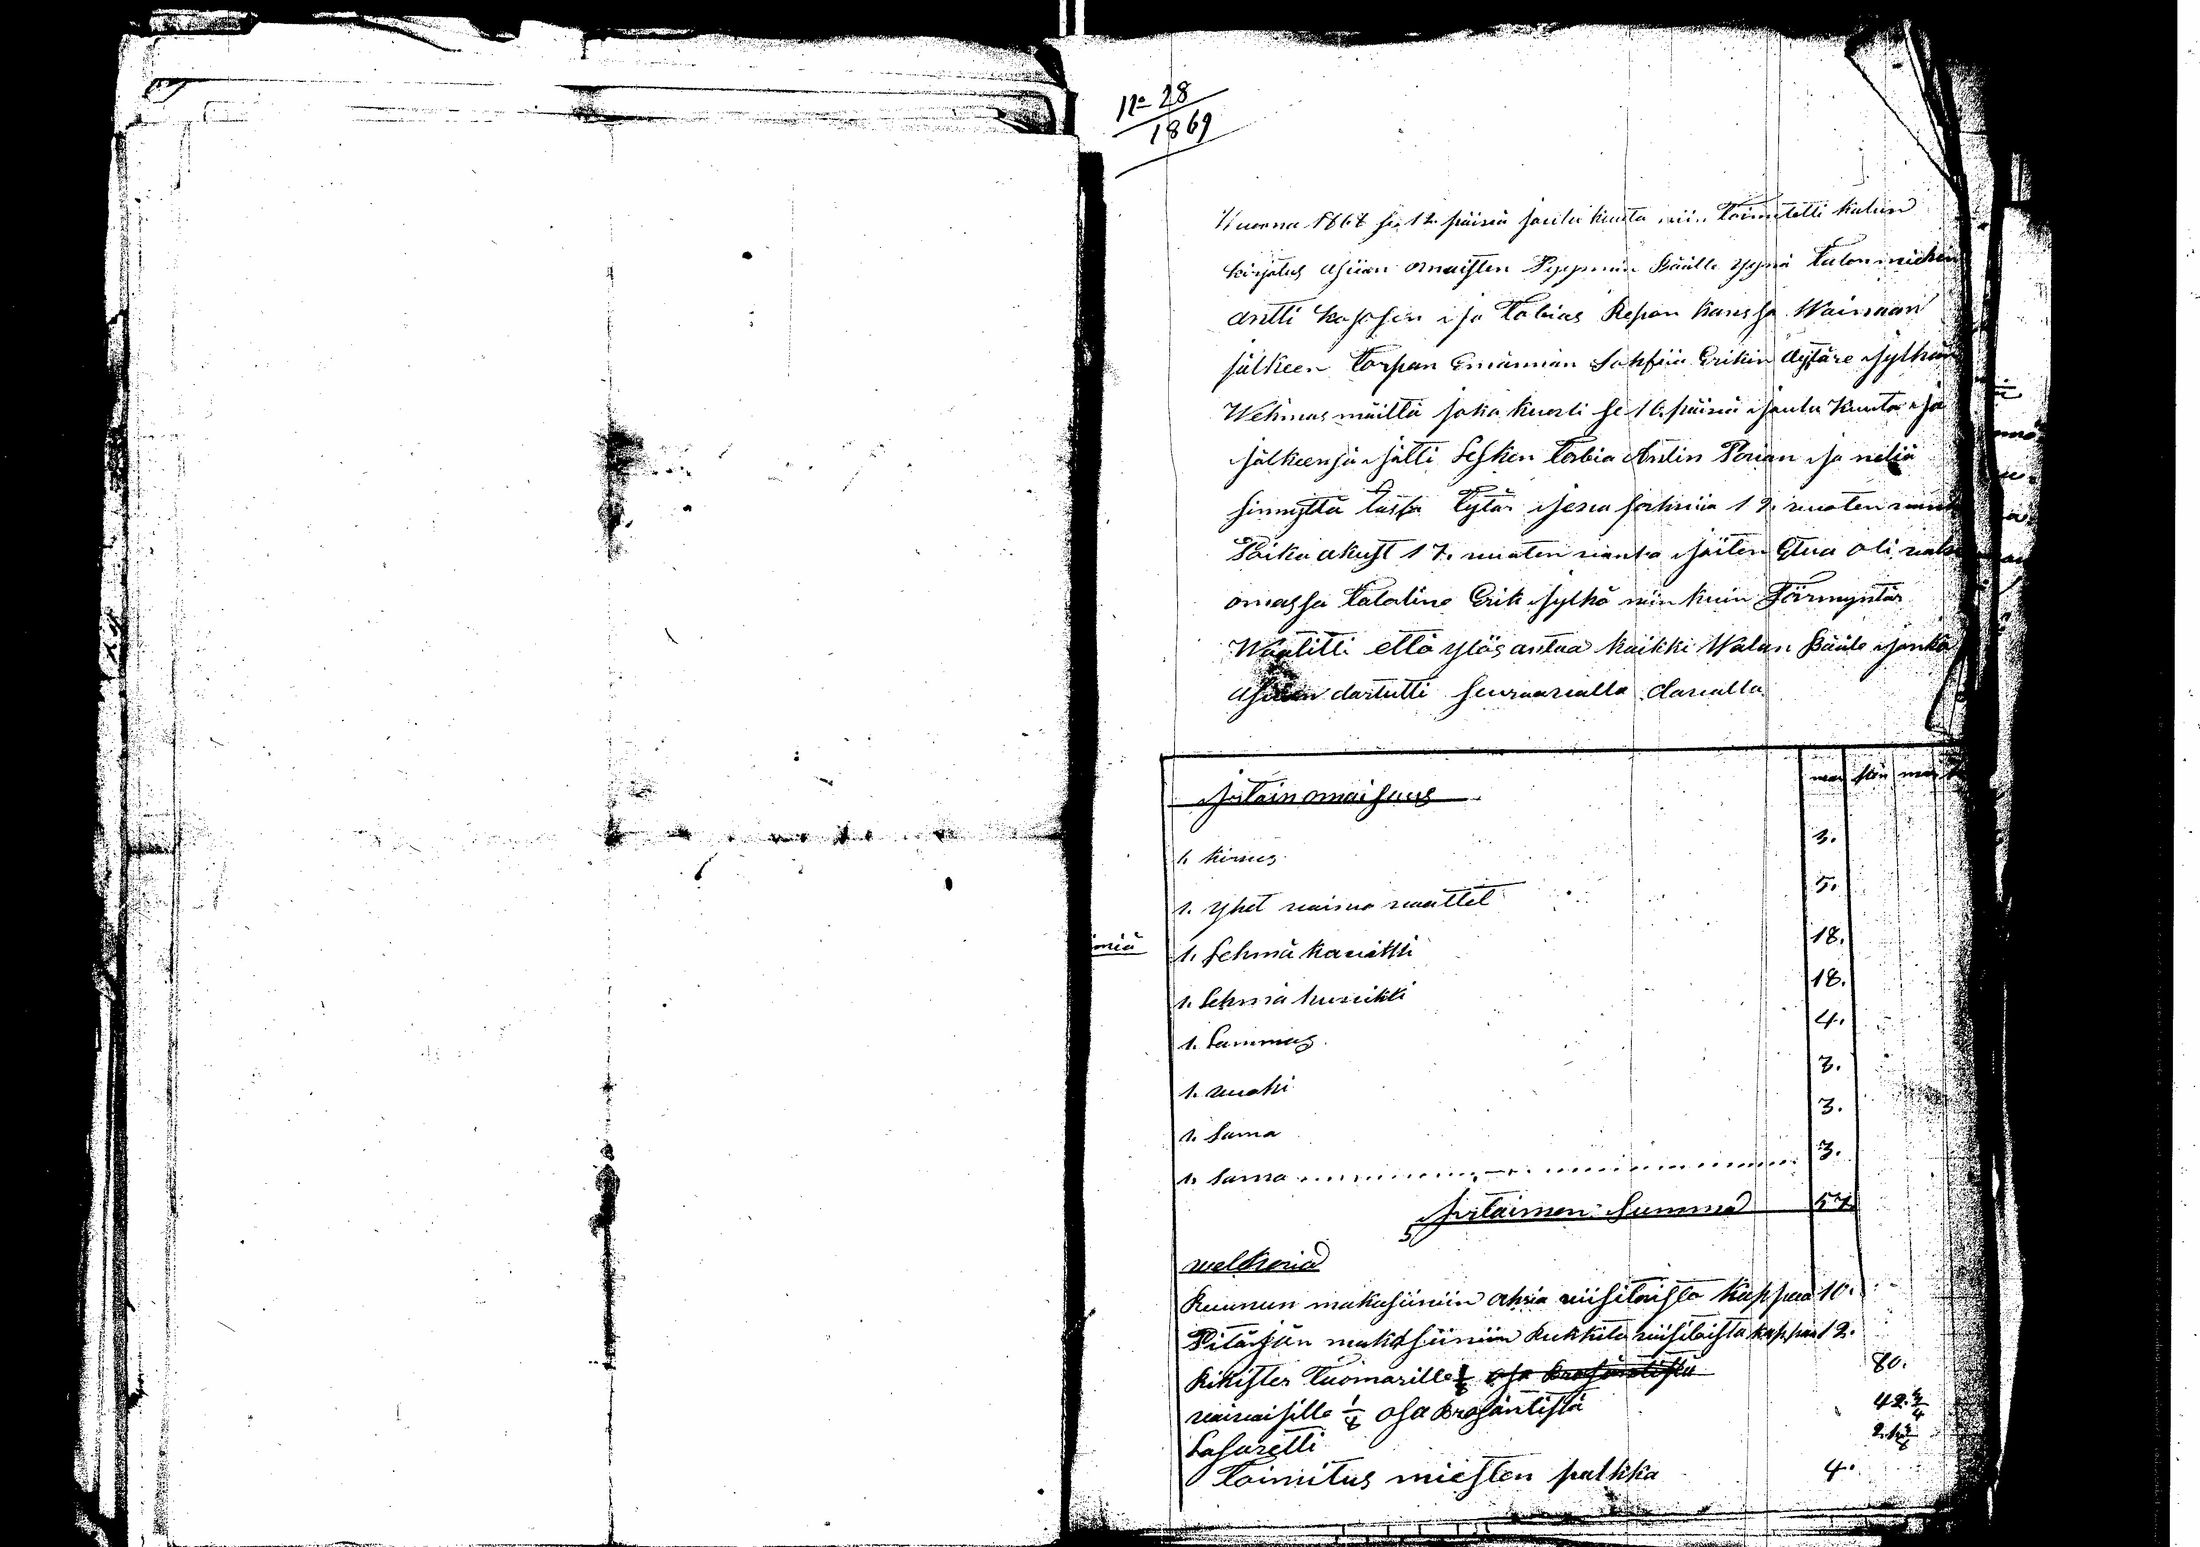 No 28
1869
Wuonna 1868 se 12. päivä joulu kuuta niin Toimitetti kalun
kirjotus asiian omaisten Pyynnin Päälle yynä Talon miehen
antti kososen ja Tobias Repon kanssa Wainaan
jälkeen Torpan Emännän Sohfiia Erikin dytäre Jylhän
Wehmas mäiltä joka kuoli se 16. päivä joulu kuuta ja
jälkeensä jätti Lesken Tobia Antin Poian ja neliä
sinnyttä lassa Tytär sohviia 19. vuoten
Poika akust 17. vuoten vanha joiten Etua oli
omassa Talolino Erik jylhö niin kuin Förmyntär
Waatitti että ylös antaa kaikki Walan Päälo jonka
dartutti seuraavalla davalla
jrtain omaisuus
1. kirves 3.
1. yhet vaimo vaattet 5.
1. Lehmä kaunikki 18.
1. Lehmä 18.
1. Lammas 4.
1. vuohi 3.
1. sama 3.
1. sama 3.
jrtaimen Summa 57.
velkoia
Kuunun makasiiniin ohria viisitoista kappaa 10.
Pitäjän makasiiniin Rukkita viisitoista kappaa 12.
Kikister Tuomarille 80.
vaivaisille 1/8 osa Prosäntistä 42.
Lasaretti
Toimitus miesten palkka 4.